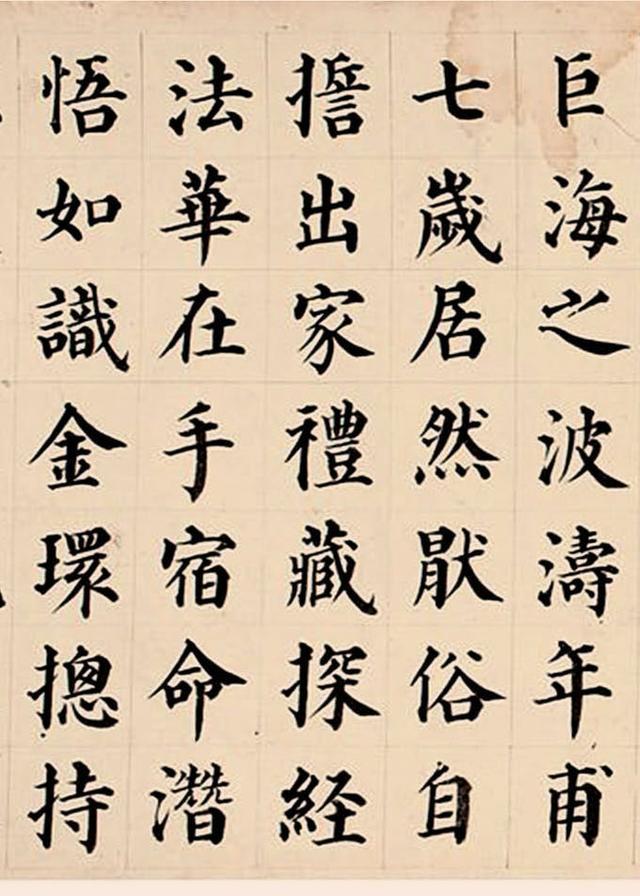 巨海之波濤年甫
七歲居然猒俗自
擔出家禮藏探経
法華在手宿命潛
悟如識金環摠持